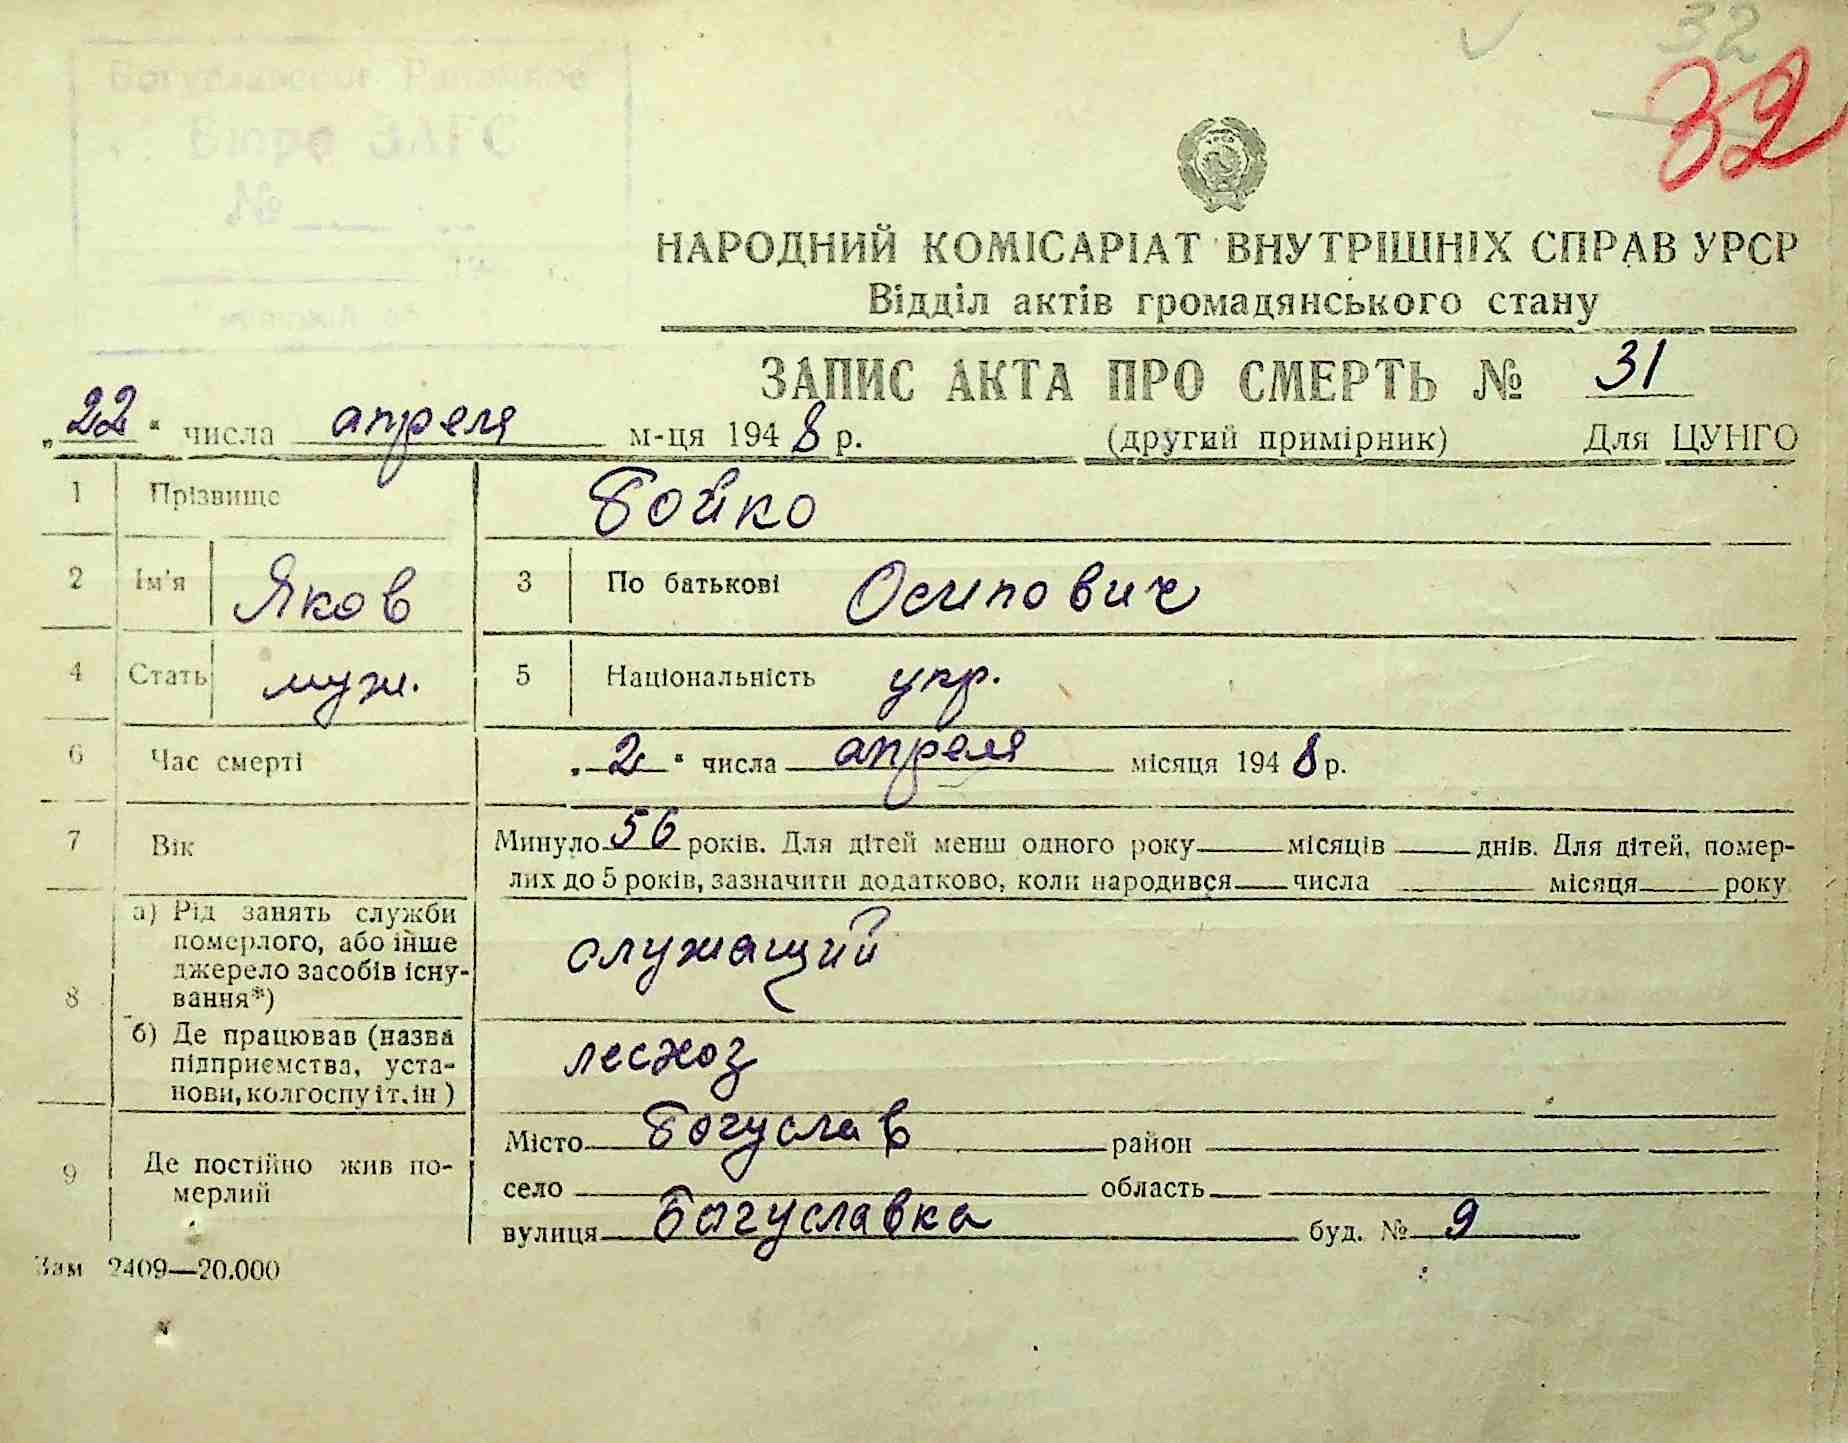 32
32
Богуславское Районное
Бюро ЗАГС
№
НАРОДНИЙ КОМІСАРІАТ ВНУТРІШНІХ СПРАВ УРСР
Відділ актів громадянського стану
ЗАПИС АКТА ПРО СМЕРТЬ № 31
„22“ числа апреля м-ця 1948 р. (другий примірник) Для ЦУНГО
1 Прізвище Бойко
2 Ім'я Яков 3 По батькові Осипович
4 Стать муж. 5 Національність укр.
6 Час смерті „2“ числа апреля місяця 1948 р.
7 Вік Минуло 56 років. Для дітей менш одного року місяців днів. Для дітей, помер-
лих до 5 років, зазначити додатково, коли народився числа місяця року
8 а) Рід занять служби
померлого, або інше
джерело засобів існу-
вання*)
служащий
б) Де працював (назва
підприємства, уста-
нови, колгоспу і т. ін)
лесхоз
9 Де постійно жив по-
мерлий
Місто Богуслав район
село область
вулиця Богуславка буд. № 9
Зам 2409—20.000